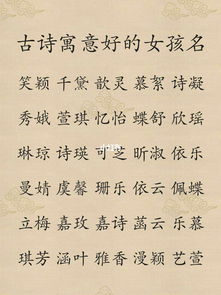 古诗寓意好的女孩名
笑颖 千黛 歆灵 慕絮 诗凝
秀娥 萱琪 忆怡 蝶舒 欣瑶
琳琼 诗瑛 可芝 昕淑 依乐
曼婧 虞馨 珊乐 依云 佩蝶
立梅 嘉玫 嘉诗 菡云 乐慕
琪芳 涵叶 雅香 漫颖 艺萱